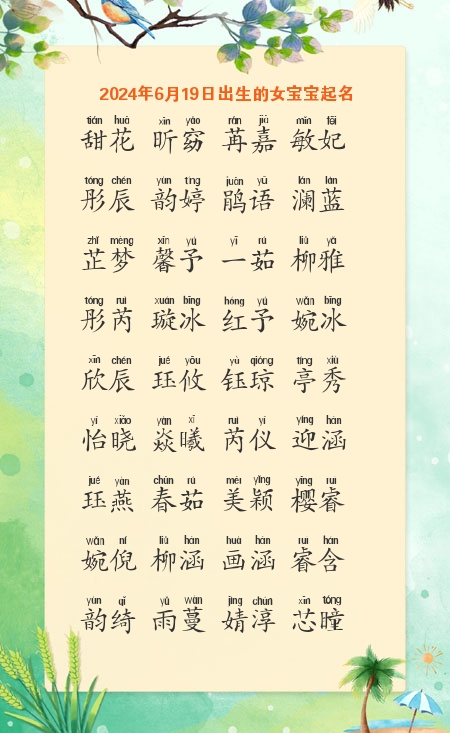 2024年6月19日出生的女宝宝起名
tián huā xīn yǎo rǎn jiā mǐn fēi
甜花 昕窈 苒嘉 敏妃
tóng chén yùn tíng juān yǔ lán lán
彤辰 韵婷 鹃语 澜蓝
zhǐ mèng xīn yú yī rú liǔ yǎ
芷梦 馨予 一茹 柳雅
tóng ruì xuán bīng hóng yú wǎn bīng
彤芮 璇冰 红予 婉冰
xīn chén jué yōu yù qióng tíng xiù
欣辰 珏攸 钰琼 亭秀
yí xiǎo yàn xī ruì yí yíng hán
怡晓 焱曦 芮仪 迎涵
jué yàn chūn rú měi yǐng yīng ruì
珏燕 春茹 美颖 樱睿
wǎn ní liǔ hán huà hán ruì hán
婉倪 柳涵 画涵 睿含
yùn qǐ yǔ wàn jìng chún xīn tóng
韵绮 雨蔓 婧淳 芯瞳